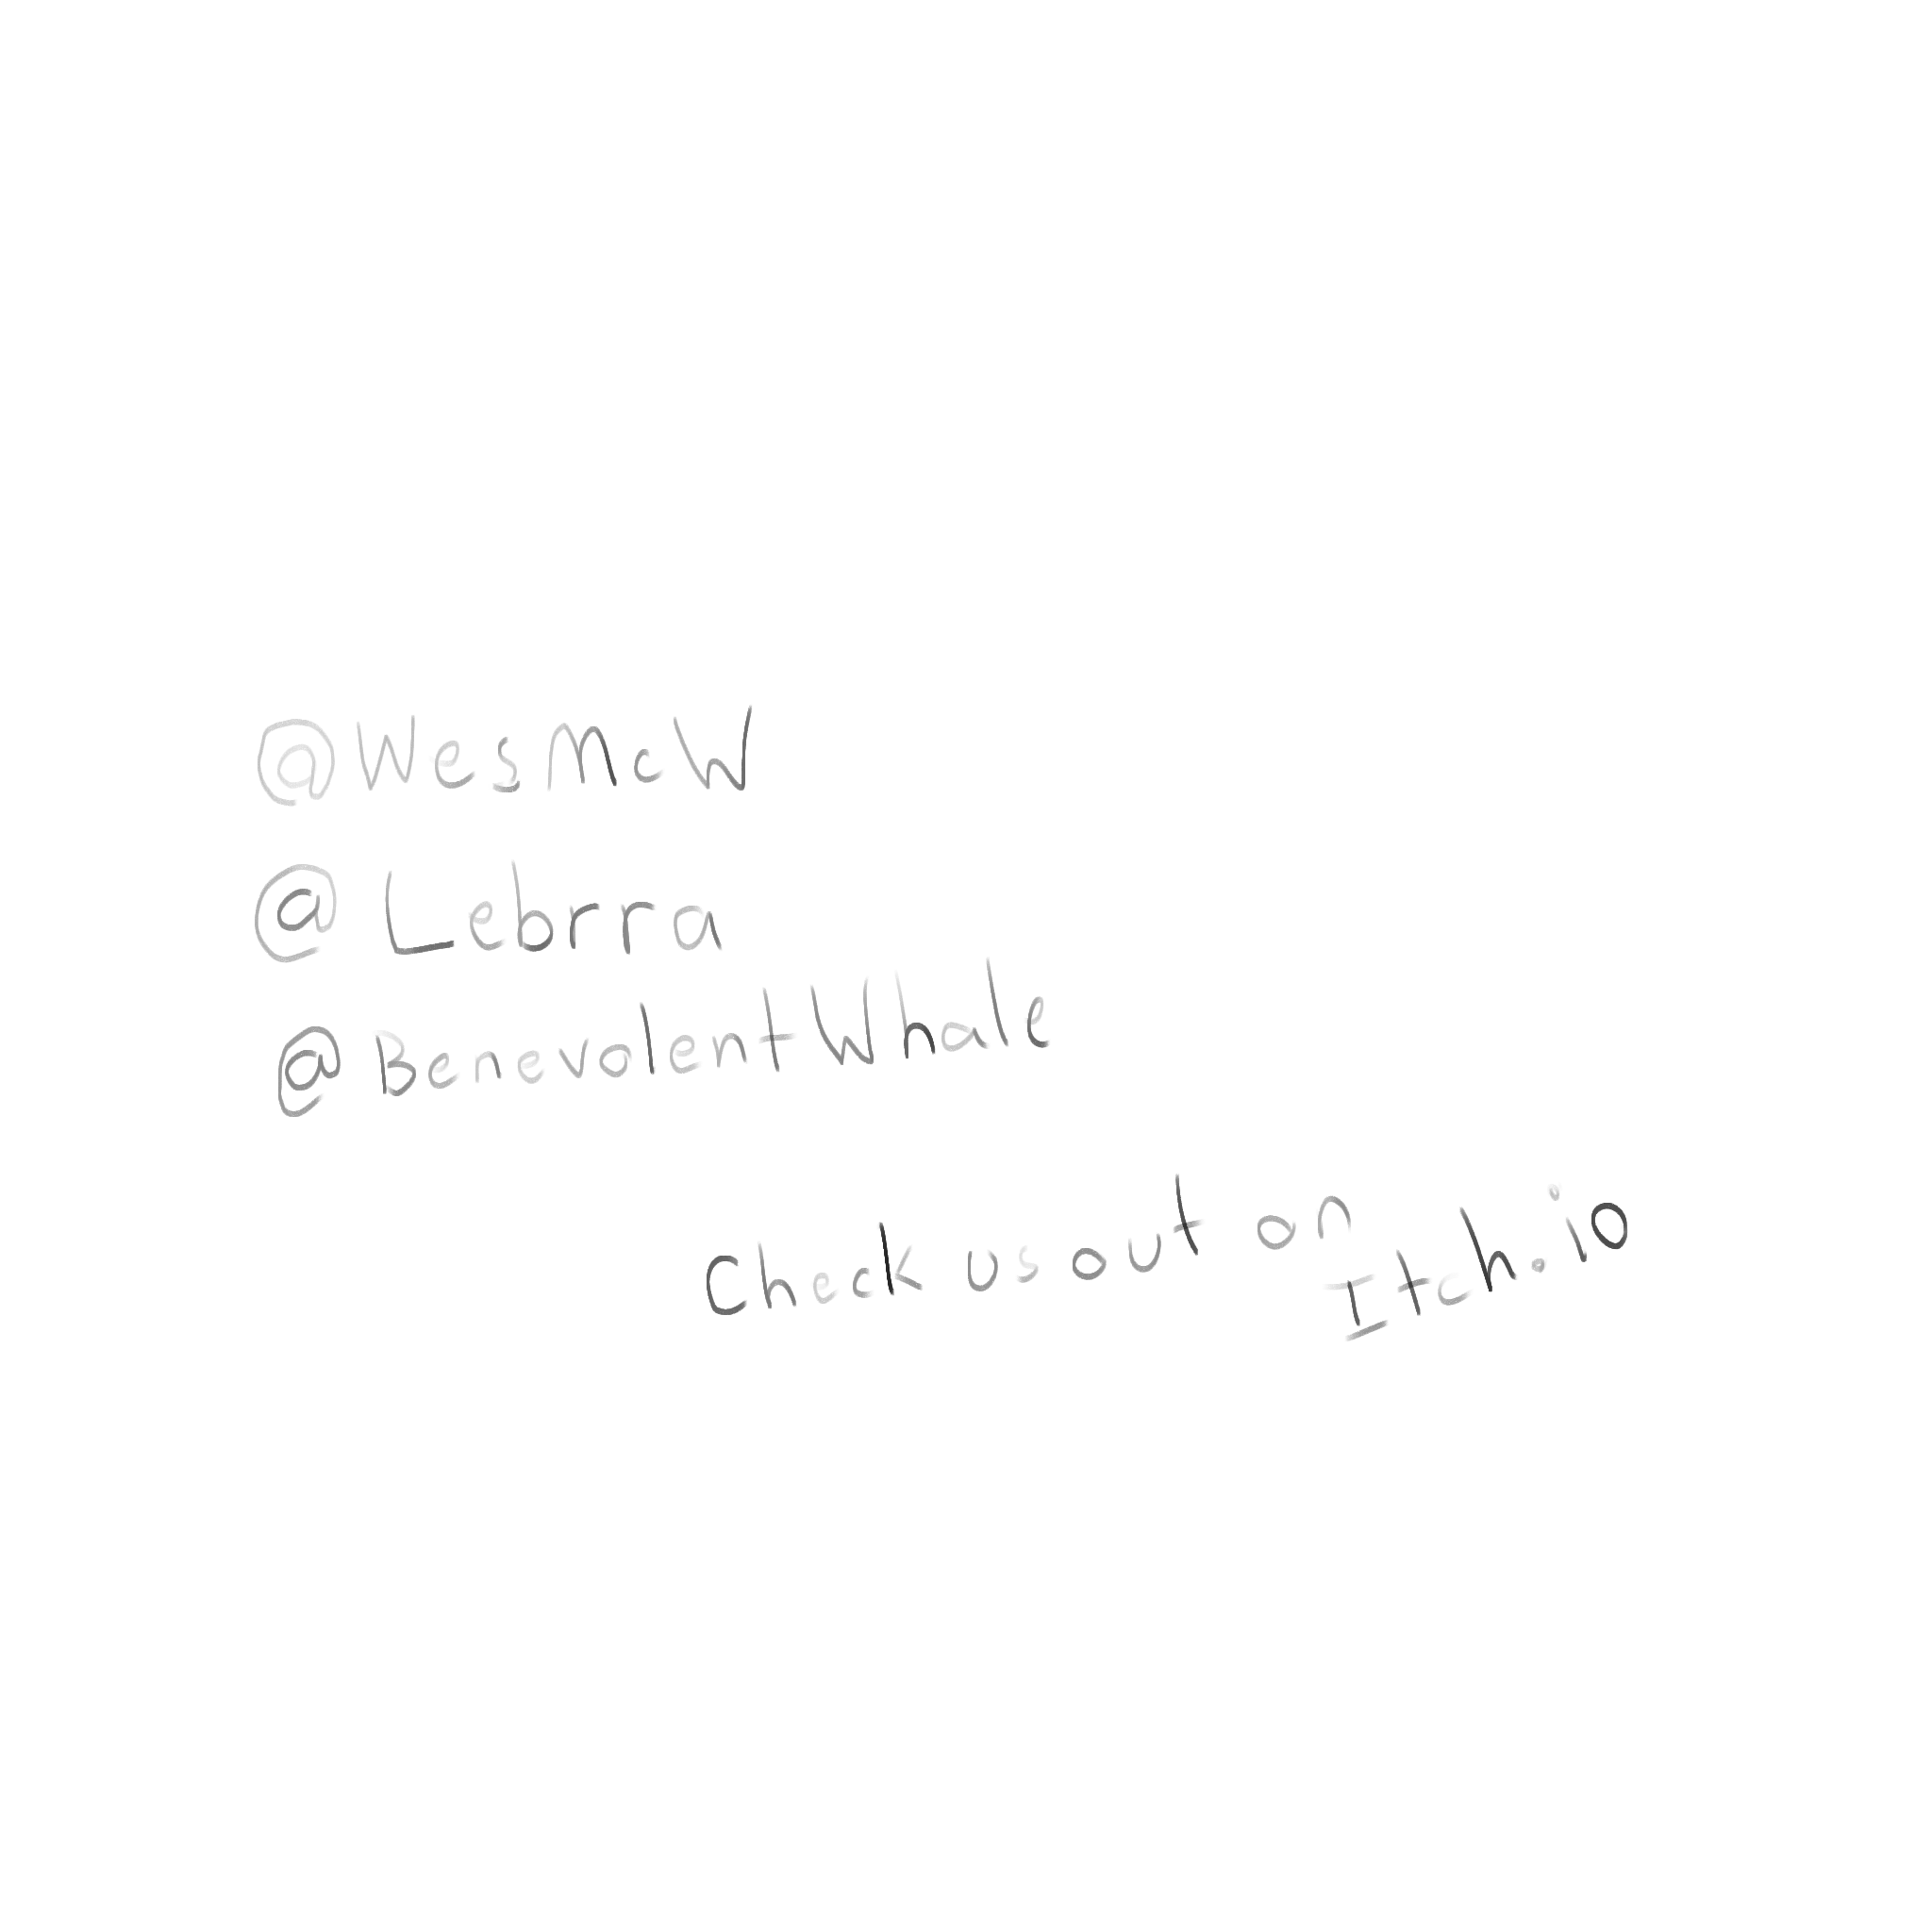 @WesMcW
@Lebrra
@BenevolentWhale
Check us out on
Itch.io